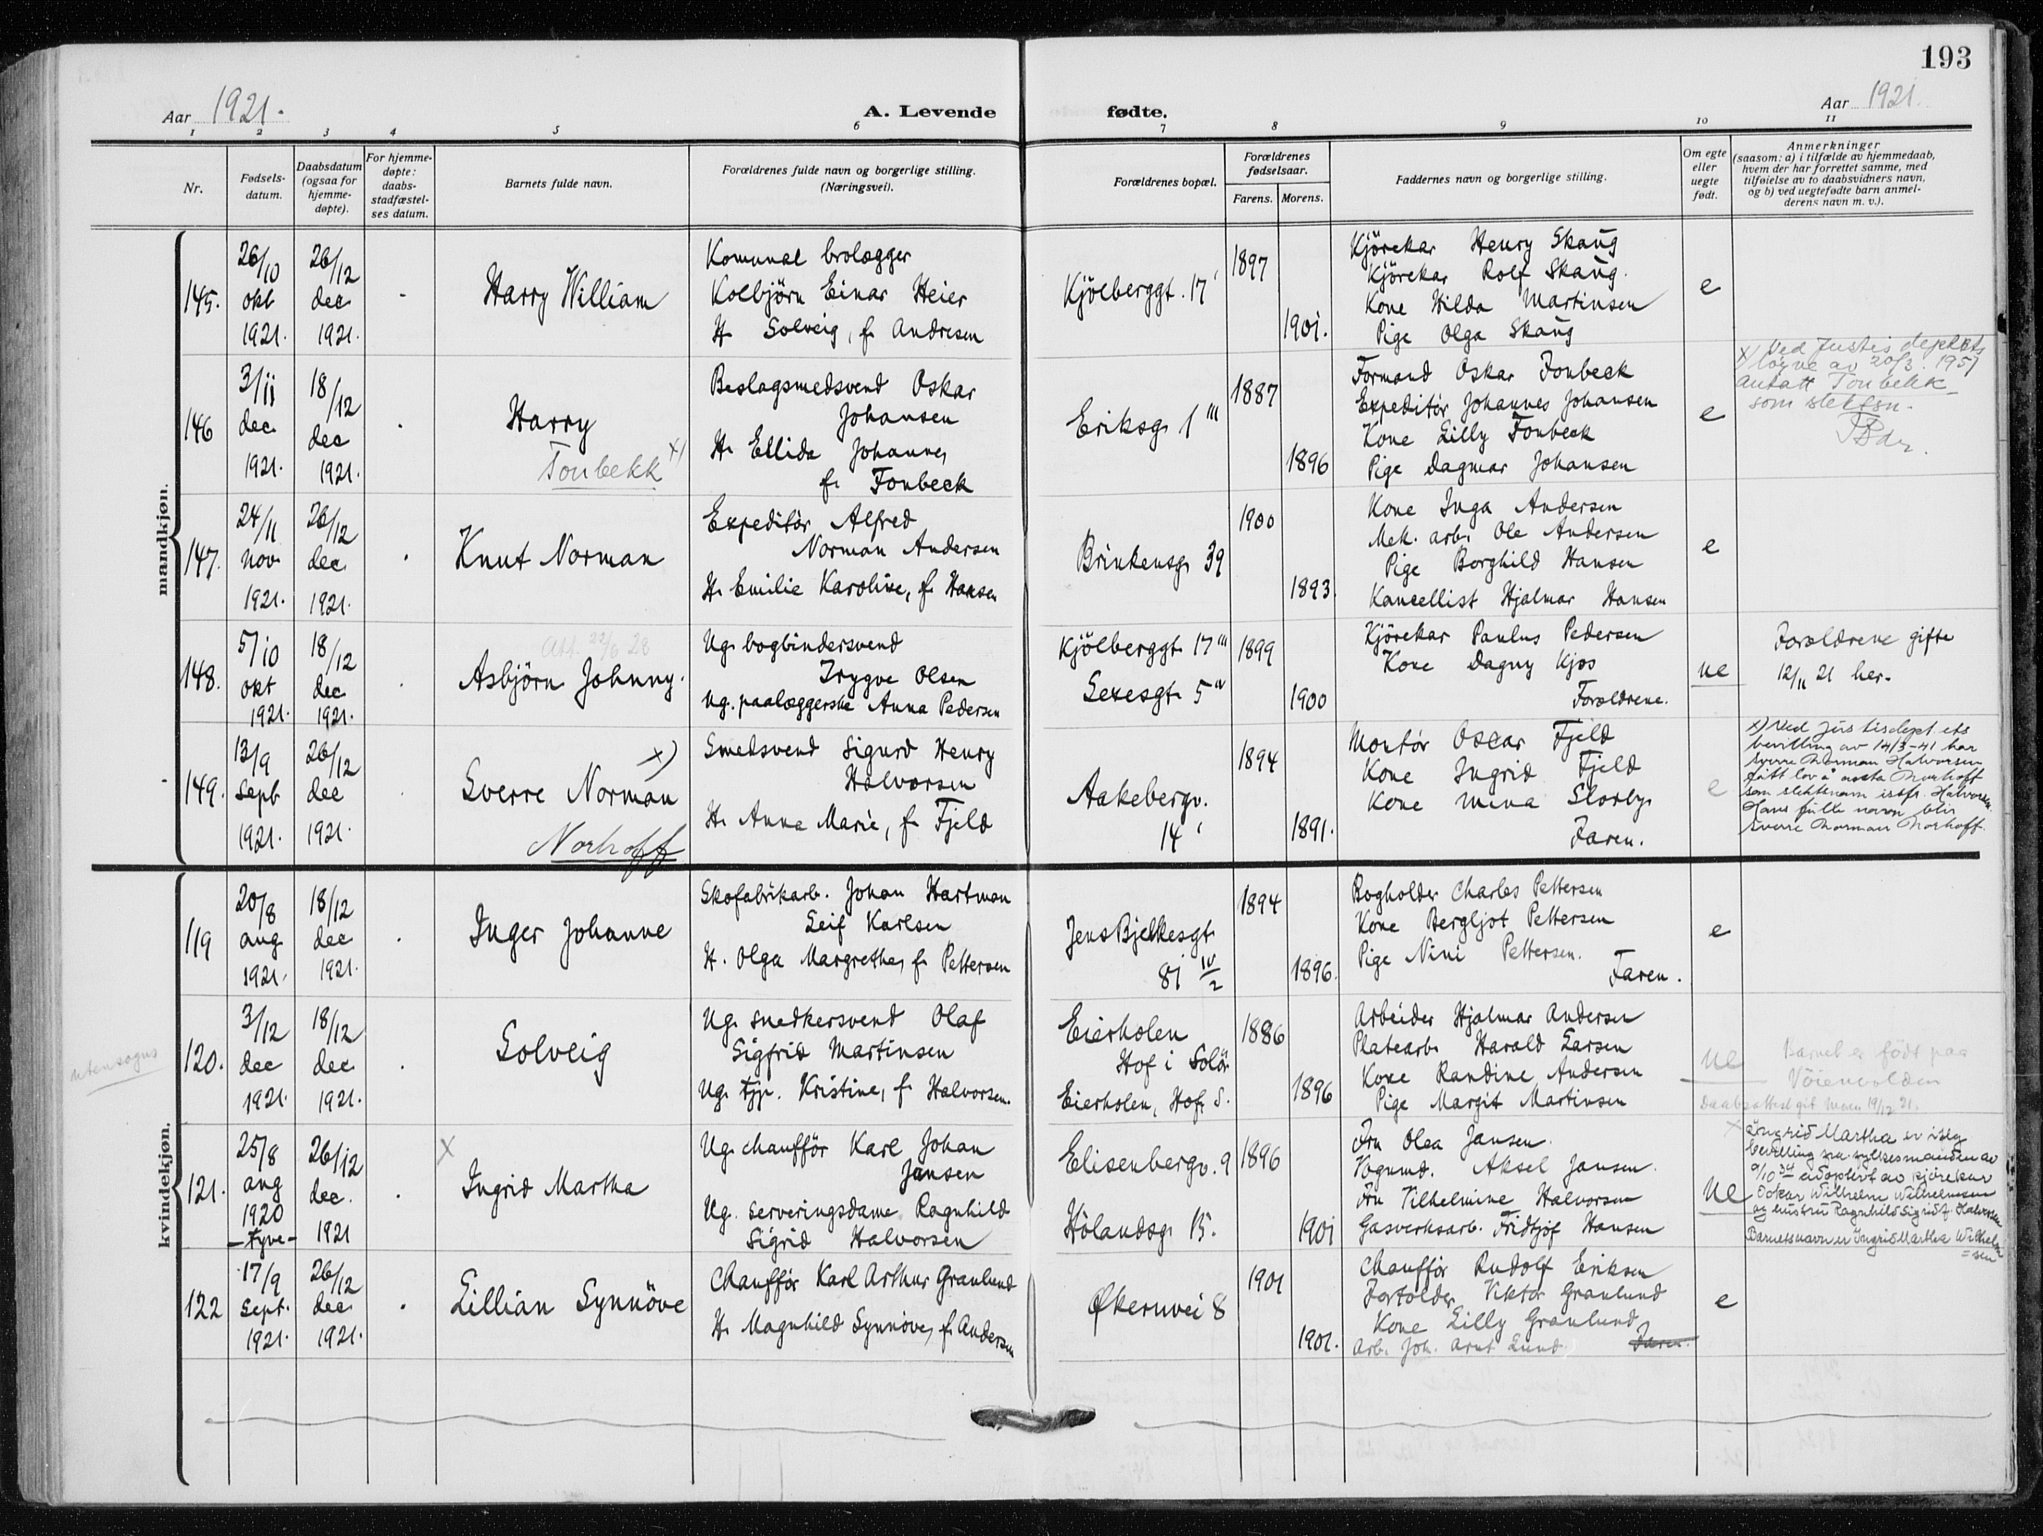 193
Aar 1921.
A. Levende fødte.
Aar 1921.
1 2 3 4 5 6 7 8 9 10 11
Nr.
Fødsels-
datum.
Daabsdatum
(ogsaa for
hjemme-
døpte).
For hjemme-
døpte:
daabs-
stadfæstel-
ses datum.
Barnets fulde navn.
Forældrenes fulde navn og borgerlige stilling.
(Næringsvei).
Forældrenes bopæl.
Forældrenes
fødselsaar.
Farens. Morens.
Faddernes navn og borgerlige stilling.
Om egte
eller
uegte
født.
Anmerkninger
(saasom: a) i tilfælde av hjemmedaab,
hvem der har forrettet samme, med
tilføielse av to daabsvidners navn,
og b) ved uegtefødte barn anmel-
derens navn m. v.).
mandkjøn.
145.
26/10
okt
1921.
26/12
dec
1921.
-
Harry William
Komunal brolægger
Kolbjörn Einar Heier
H. Solveig, f. Andresen
Kjölberggt. 17 I
1897
1901.
Kjörekar Henry Skaug
Kjörekar Rolf Skaug.
Kone Hilda Martinsen
Pige Olga Skaug
e
146
3/11
dec.
1921.
18/12
dec
1921.
Harry
Tonbekk x)
Beslagsmedsvend Oskar
Johansen
H. Ellida Johanne,
f. Tonbeck
Eriksg. 1 III
1887
1896
Formand Oskar Tonbeck
Expeditör Johannes Johansen
Kone Lilly Tonbeck
Pige Dagmar Johansen
e
x) Ved Justisdeptets
löyve av 20/3. 1951
antatt Tonbekk
som slektsn.
147.
24/11
nov
1921.
26/12
dec.
1921.
Knut Norman
Expeditör Alfred
Norman Andersen
H. Emilie Karoline, f. Hansen
Brinkensg. 39
1900
1893.
Kone Inga Andersen
Mek. arb. Ole Andersen
Pige Borghild Hansen
Kancellist Hjalmar Hansen
e
148.
5/10
okt
1921.
18/12
dec
1921.
Att. 22/6 28
Asbjörn Johnny.
Ug. bogbindersvend
Trygve Olsen
Ug. paalæggerske Anna Pedersen
Kjölberggt. 17 III
Sexesgt. 5 IV
1899
1900
Kjörekar Paulus Pedersen
Kone Dagny Kjos
Forældrene.
ue
Forældrene gifte
12/11 21 her.
149.
13/9
Sept
1921.
26/12
dec
1921.
x)
Sverre Norman
Norhoff
Smedsvend Sigurd Henry
Halvorsen
H. Anna Marie, f. Fjeld
Aakebergv.
14 I
1894
1891.
Montör Oscar Fjeld
Kone Ingrid Fjeld
Kone Mina Slorby.
Faren.
e
x) Ved Justisdept.ets
bevilling av 14/3-41 har
Sverre Norman Halvorsen
fått lov å anta Norhoff
som slektsnavn istf. Halvorsen.
Hans fulle navn blir
Sverre Norman Norhoff.
kvindekjøn.
119
20/8
aug
1921.
18/12
dec
1921.
Inger Johanne
Skofabrikarb. Johan Hartman
Leif Karlsen
H. Olga Margrethe, f. Pettersen
Jens Bjelkesgt
81 IV/2
1894
1896.
Bogholder Charles Pettersen
Kone Bergljot Pettersen
Pige Nini Pettersen.
Faren.
e
utensogns
120.
3/12
dec
1921.
18/12
dec
1921.
Solveig
Ug. snedkersvend Olaf
Sigfrid Martinsen
Ug. tjp. Kristine, f. Halvorsen.
Eierholen
Hof i Solör
Eierholen, Hof. S.
1886
1896
Arbeider Hjalmar Andersen
Platearb. Harald Larsen
Kone Randine Andersen
Pige Margit Martinsen
ue
Barnet er födt paa
Vöienvolden
Daabsattest git moren 19/12 21.
121.
25/8
aug
1920
-tyve-
26/12
dec.
1921
x
Ingrid Martha
Ug. chaufför Karl Johan
Jansen
Ug. serveringsdame Ragnhild
Sigrid Halvorsen
Elisenbergv. 9
Hölandsg. 15.
1896
1901
Fru Olea Jansen.
Vognmd. Aksel Jansen.
Fru Vilhelmine Halvorsen
Gasverksarb. Fridtjof Hansen
ue
x Ingrid Martha er iflg
bevilling fra fylkesmanden av
9/10 34 adoptert av kjörekar
Oskar Wilhelm Wilhelmsen
og hustru Ragnhild Sigrid f. Halvorsen
Barnets navn er Ingrid Martha Wilhelm
=sen
122
17/9
Sept.
1921.
26/12
dec.
1921.
Lillian Synnöve
Chaufför Karl Arthur Granlund
H. Magnhild Synnöve, f. Andersen
Økernvei 8
1901
1901.
Chaufför Rudolf Eriksen
Fortolder Viktor Granlund
Kone Lilly Granlund
Arb. Joh. Arnt Lund. Faren.
e